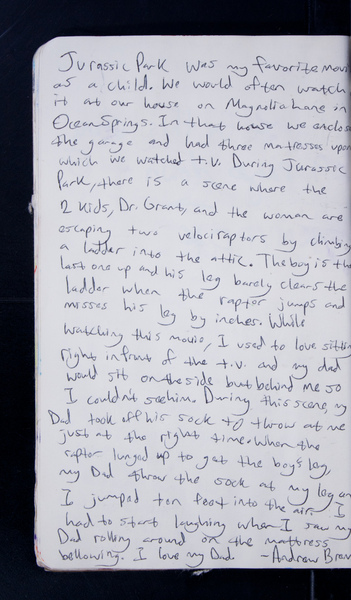 Jurassic Park was my favorite movi
as a child. We would often watch
it at our house on Magnolia Lane in
Ocean Springs. In that house we enclos
the garage and had three mattresses upon
which we watched t.v. During Jurassic
Park, there is a scene where the
2 kids, Dr. Grant, and the woman are
escaping two velociraptors by climbing
a ladder into the attic. The boy is the
last one up and his leg barely clears the
ladder when the raptor jumps and
misses his leg by inches. While
watching this movie, I used to love sittin
right infront of the t.v. and my dad
would sit on the side but behind me so
I couldn't see him. During this scene, my
Dad took off his sock to throw at me
just at the right time. When the
raptor lunged up to get the boy's leg,
my Dad throw the sock at my leg an
I jumped ten feet into the air. I
had to start laughing when I saw my
Dad rolling around on the mattress
bellowing. I love my Dad. -Andrew Brow